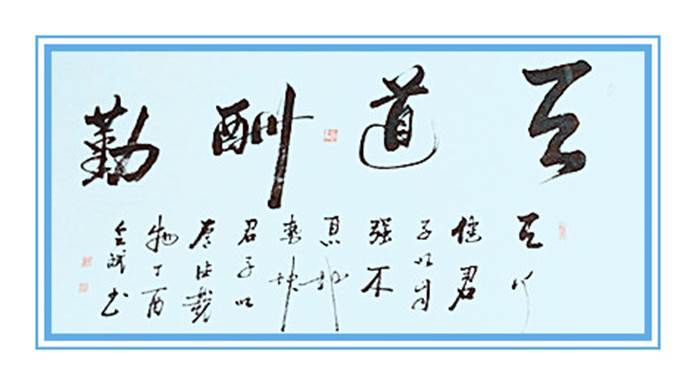 天道酬勤
天行
健君
子以自
强不
息地
势坤
君子以
厚德载
物丁酉
书